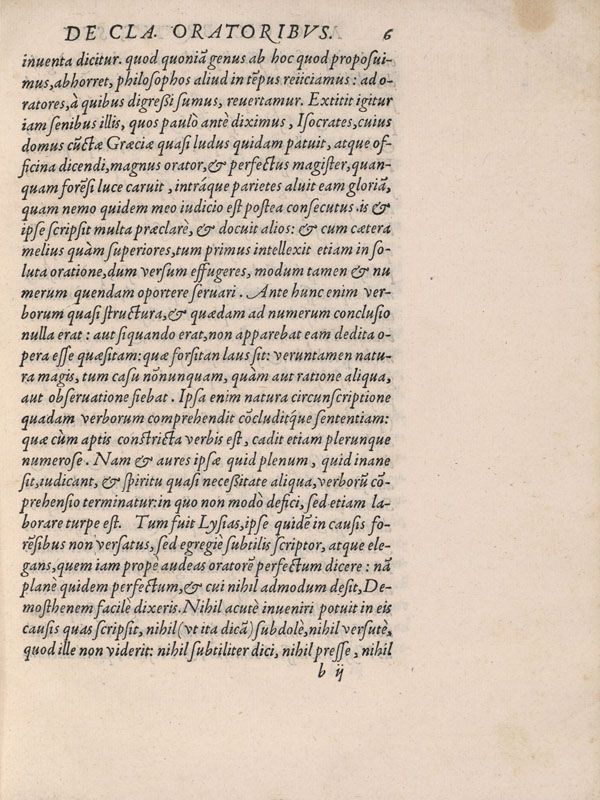 DE CLA. ORATORIBVS. 6
inuenta dicitur. quod quoniã genus ab hoc quod proposui-
mus,abhorret, philosophos aliud in tẽpus reiiciamus : ad o-
ratores,à quibus digreßi sumus, reuertamur. Extitit igitur
iam senibus illis, quos paulò antè diximus, Isocrates,cuius
domus cũctæ Græciæ quasi ludus quidam patuit, atque of-
ficina dicendi,magnus orator,& perfectus magister,quan-
quam forẽsi luce caruit, intráque parietes aluit eam gloriã,
quam nemo quidem meo iudicio est postea consecutus.is &
ipse scripsit multa præclarè, & docuit alios: & cum cætera
melius quàm superiores,tum primus intellexit etiam in so-
luta oratione,dum versum effugeres, modum tamen & nu
merum quendam oportere seruari. Ante hunc enim ver-
borum quasi structura,& quædam ad numerum conclusio
nulla erat : aut siquando erat,non apparebat eam dedita o-
pera esse quæsitam: quæ forsitan laus sit: veruntamen natu-
ra magis, tum casu nõnunquam, quàm aut ratione aliqua,
aut obseruatione fiebat. Ipsa enim natura circunscriptione
quadam verborum comprehendit cõcluditq́ue sententiam:
quæ cùm aptis constricta verbis est, cadit etiam plerunque
numerose. Nam & aures ipsæ quid plenum, quid inane
sit,iudicant, & spiritu quasi necessitate aliqua,verborũ cõ-
prehensio terminatur:in quo non modò defici, sed etiam la-
borare turpe est. Tum fuit Lysias,ipse quidẽ in causis fo-
rẽsibus non versatus, sed egregiè subtilis scriptor, atque ele-
gans,quem iam propè audeas oratorẽ perfectum dicere : nã
planè quidem perfectum,& cui nihil admodum desit,De-
mosthenem facilè dixeris. Nihil acutè inueniri potuit in eis
causis quas scripsit, nihil(vt ita dicã)subdolè,nihil versutè,
quod ille non viderit: nihil subtiliter dici, nihil presse, nihil
b ij